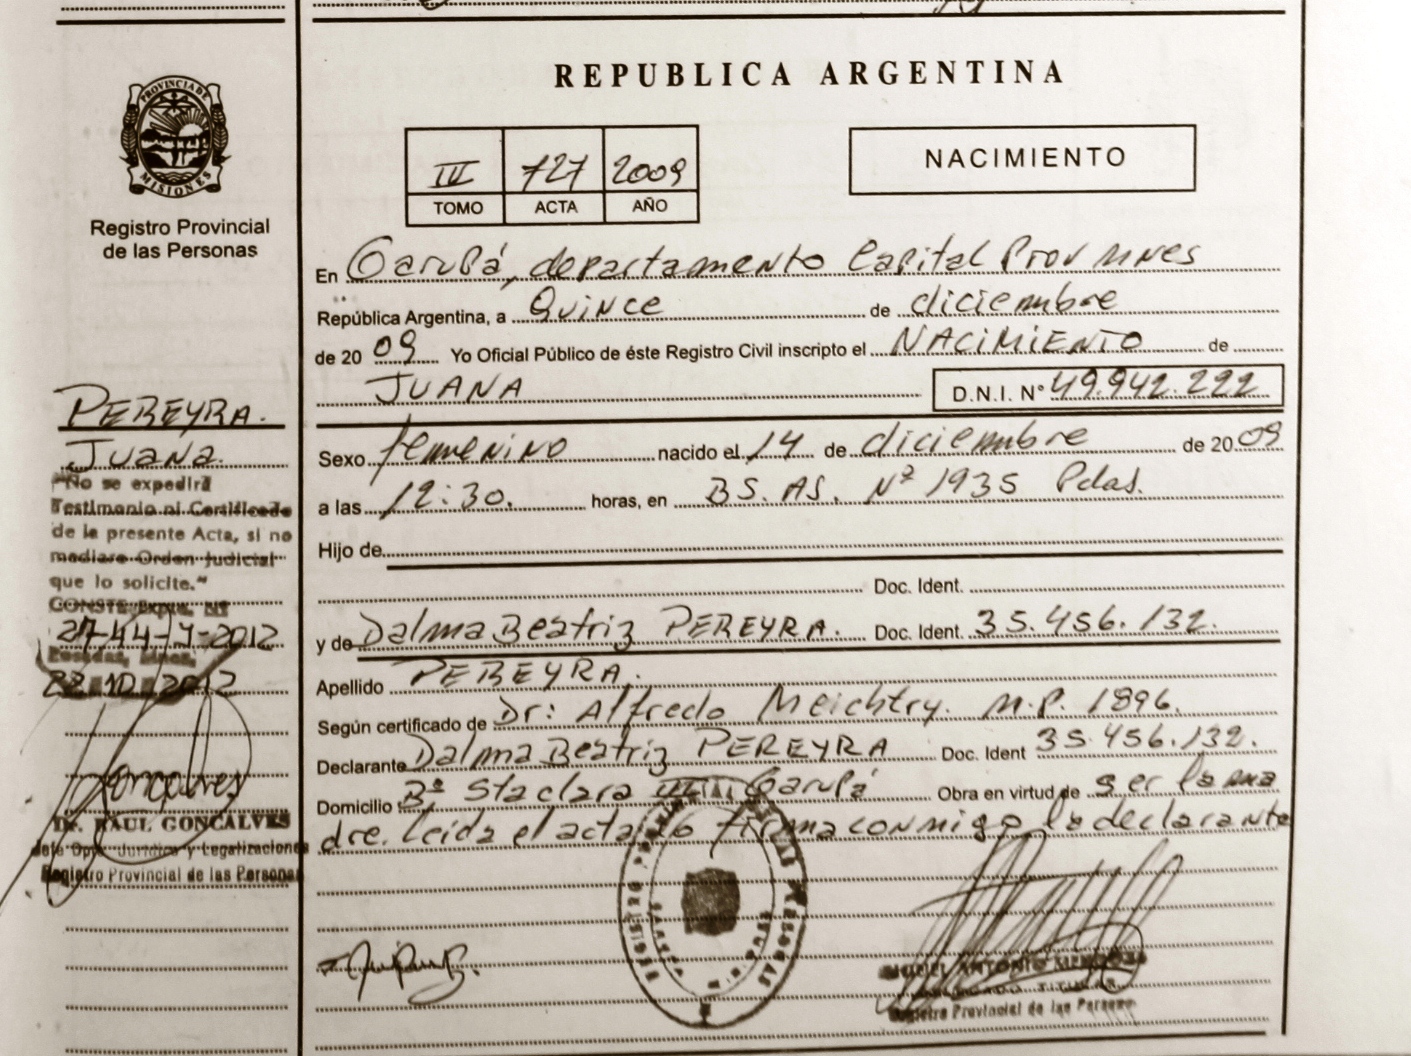 REPUBLICA ARGENTINA
PROVINCIA DE
MISIONES
Registro Provincial
de las Personas
III 727 2009
TOMO ACTA AÑO
NACIMIENTO
En Garupá, departamento Capital Prov Mnes
República Argentina, a Quince de diciembre
de 2009 Yo Oficial Público de éste Registro Civil inscripto el NACIMIENTO de
JUANA D.N.I. Nº 49.942.222
Sexo femenino nacido el 14 de diciembre de 2009
a las 12:30. horas, en BS. AS. Nº 1935 Pdas.
Hijo de
Doc. Ident.
y de Dalma Beatriz PEREYRA. Doc. Ident. 35.456.132.
Apellido PEREYRA.
Según certificado de Dr: Alfredo Meichtry. M.P. 1896.
Declarante Dalma Beatriz PEREYRA Doc. Ident 35.456.132.
Domicilio Bº Sta clara III Garupá Obra en virtud de ser la ma
dre. Leida el acta lo firma conmigo la declarante
PEREYRA.
Juana.
"No se expedirá
Testimonio ni Certificado
de la presente Acta, si no
mediare Orden Judicial
que lo solicite."
CONSTE: Expte. Nº
Posadas, Mnes,
22 10 2012
Goncalves
Dr. RAUL GONCALVES
Jefe Dpto. Jurídico y Legalizaciones
Registro Provincial de las Personas
REGISTRO
ANTONIO
Registro Provincial de las Personas